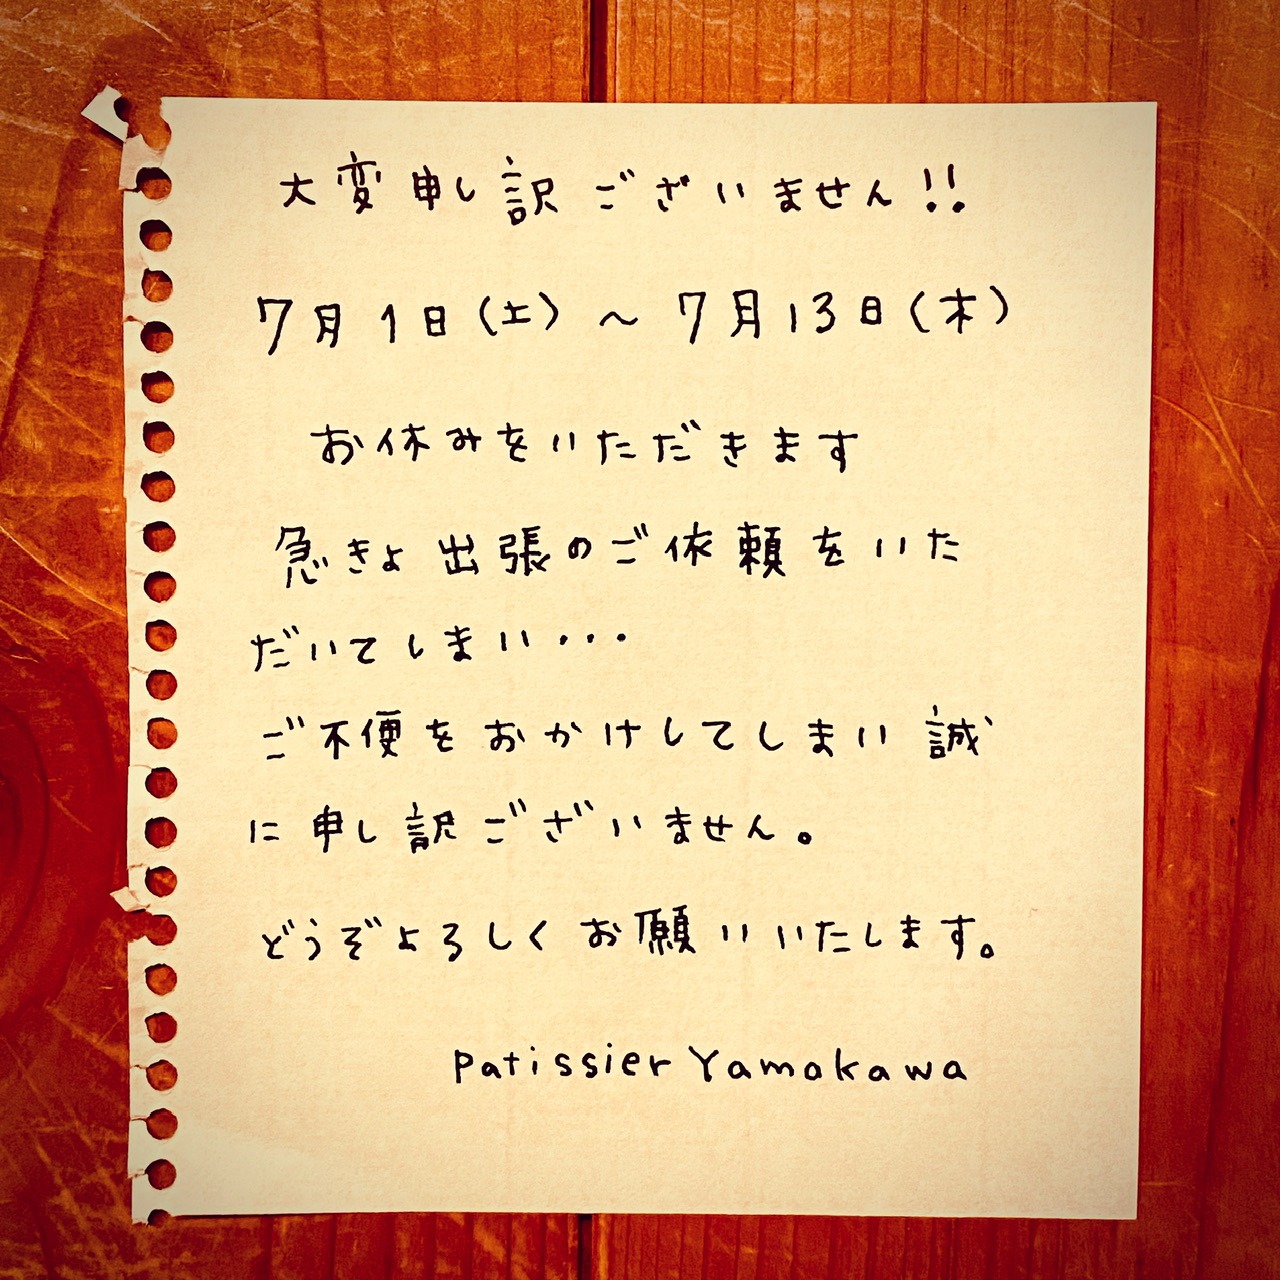 大変申し訳ございません!!
7月1日(土)～7月13日(木)
お休みをいただきます
急きょ出張のご依頼をいた
だいてしまい・・・
ご不便をおかけしてしまい誠
に申し訳ございません。
どうぞよろしくお願いいたします。
Patissier Yamakawa